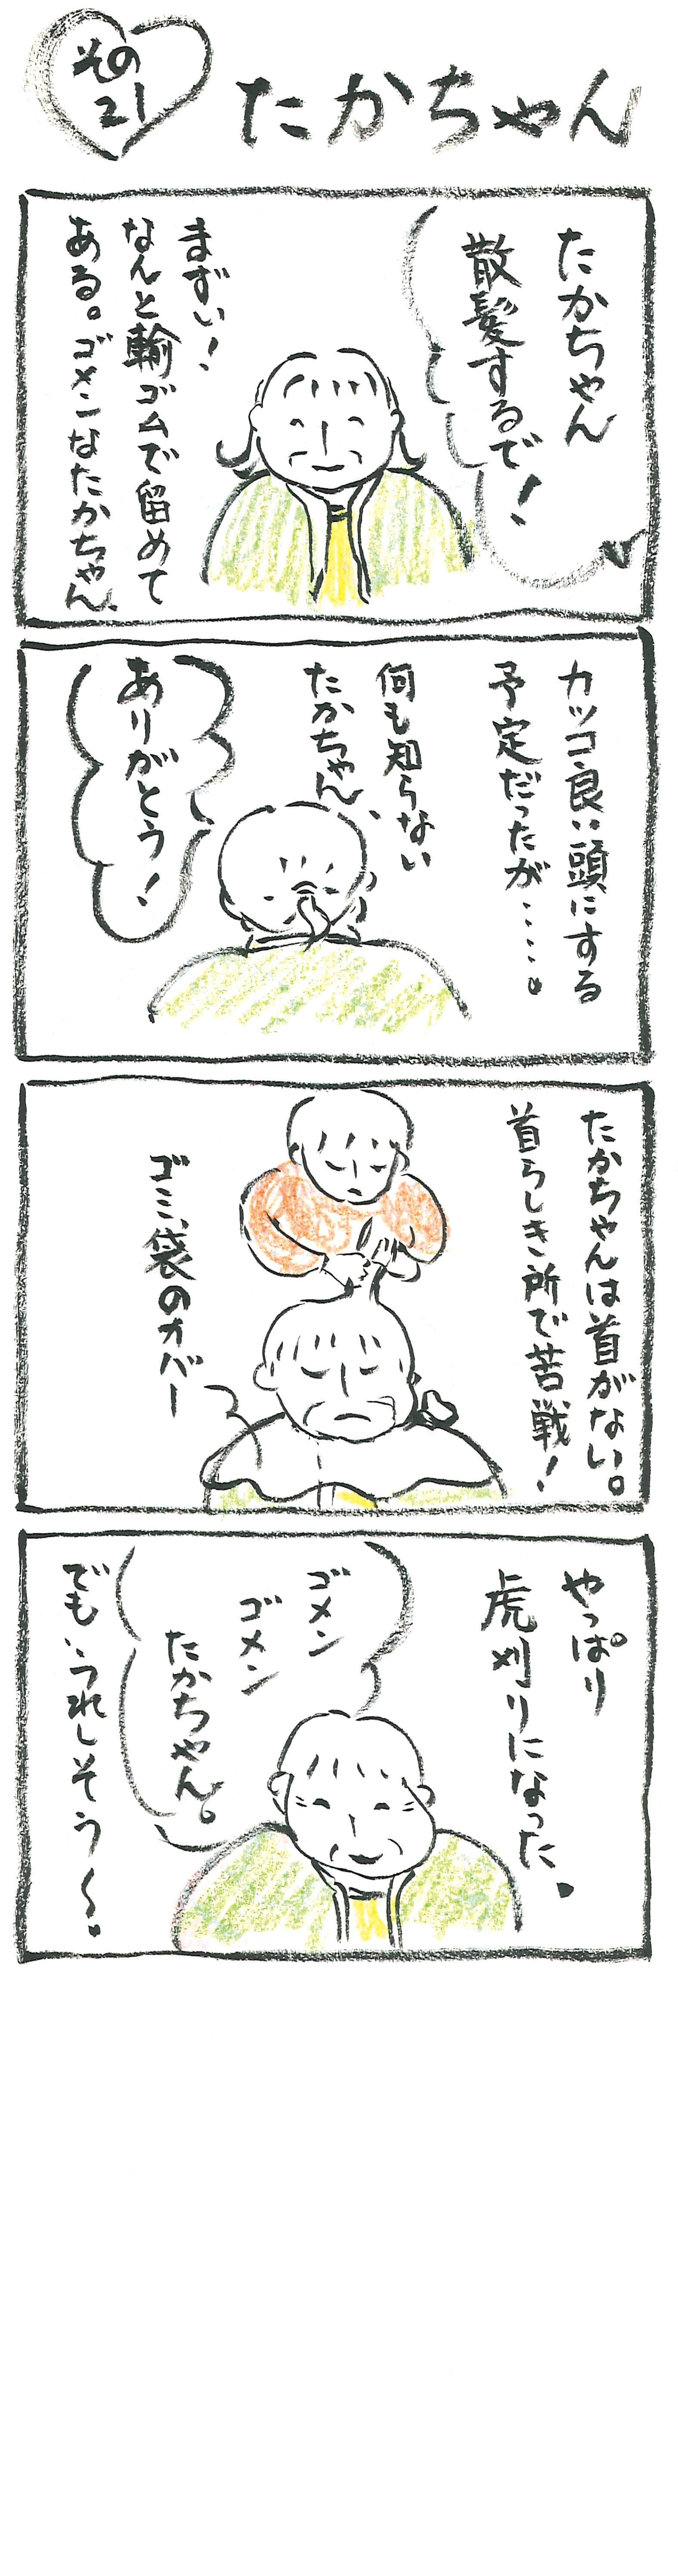 その
21
たかちゃん
たかちゃん
散髪するで!
まずい!
なんと輪ゴムで留めて
ある。ゴメンなたかちゃん、
カッコ良い頭にする
予定だったが・・・・。
何も知らない
たかちゃん、
ありがとう!
たかちゃんは首がない。
首らしき所で苦戦!
ゴミ袋のカバー
やっぱり
虎刈りになった。
ゴメン
ゴメン
たかちゃん。
でも、うれしそう〜。